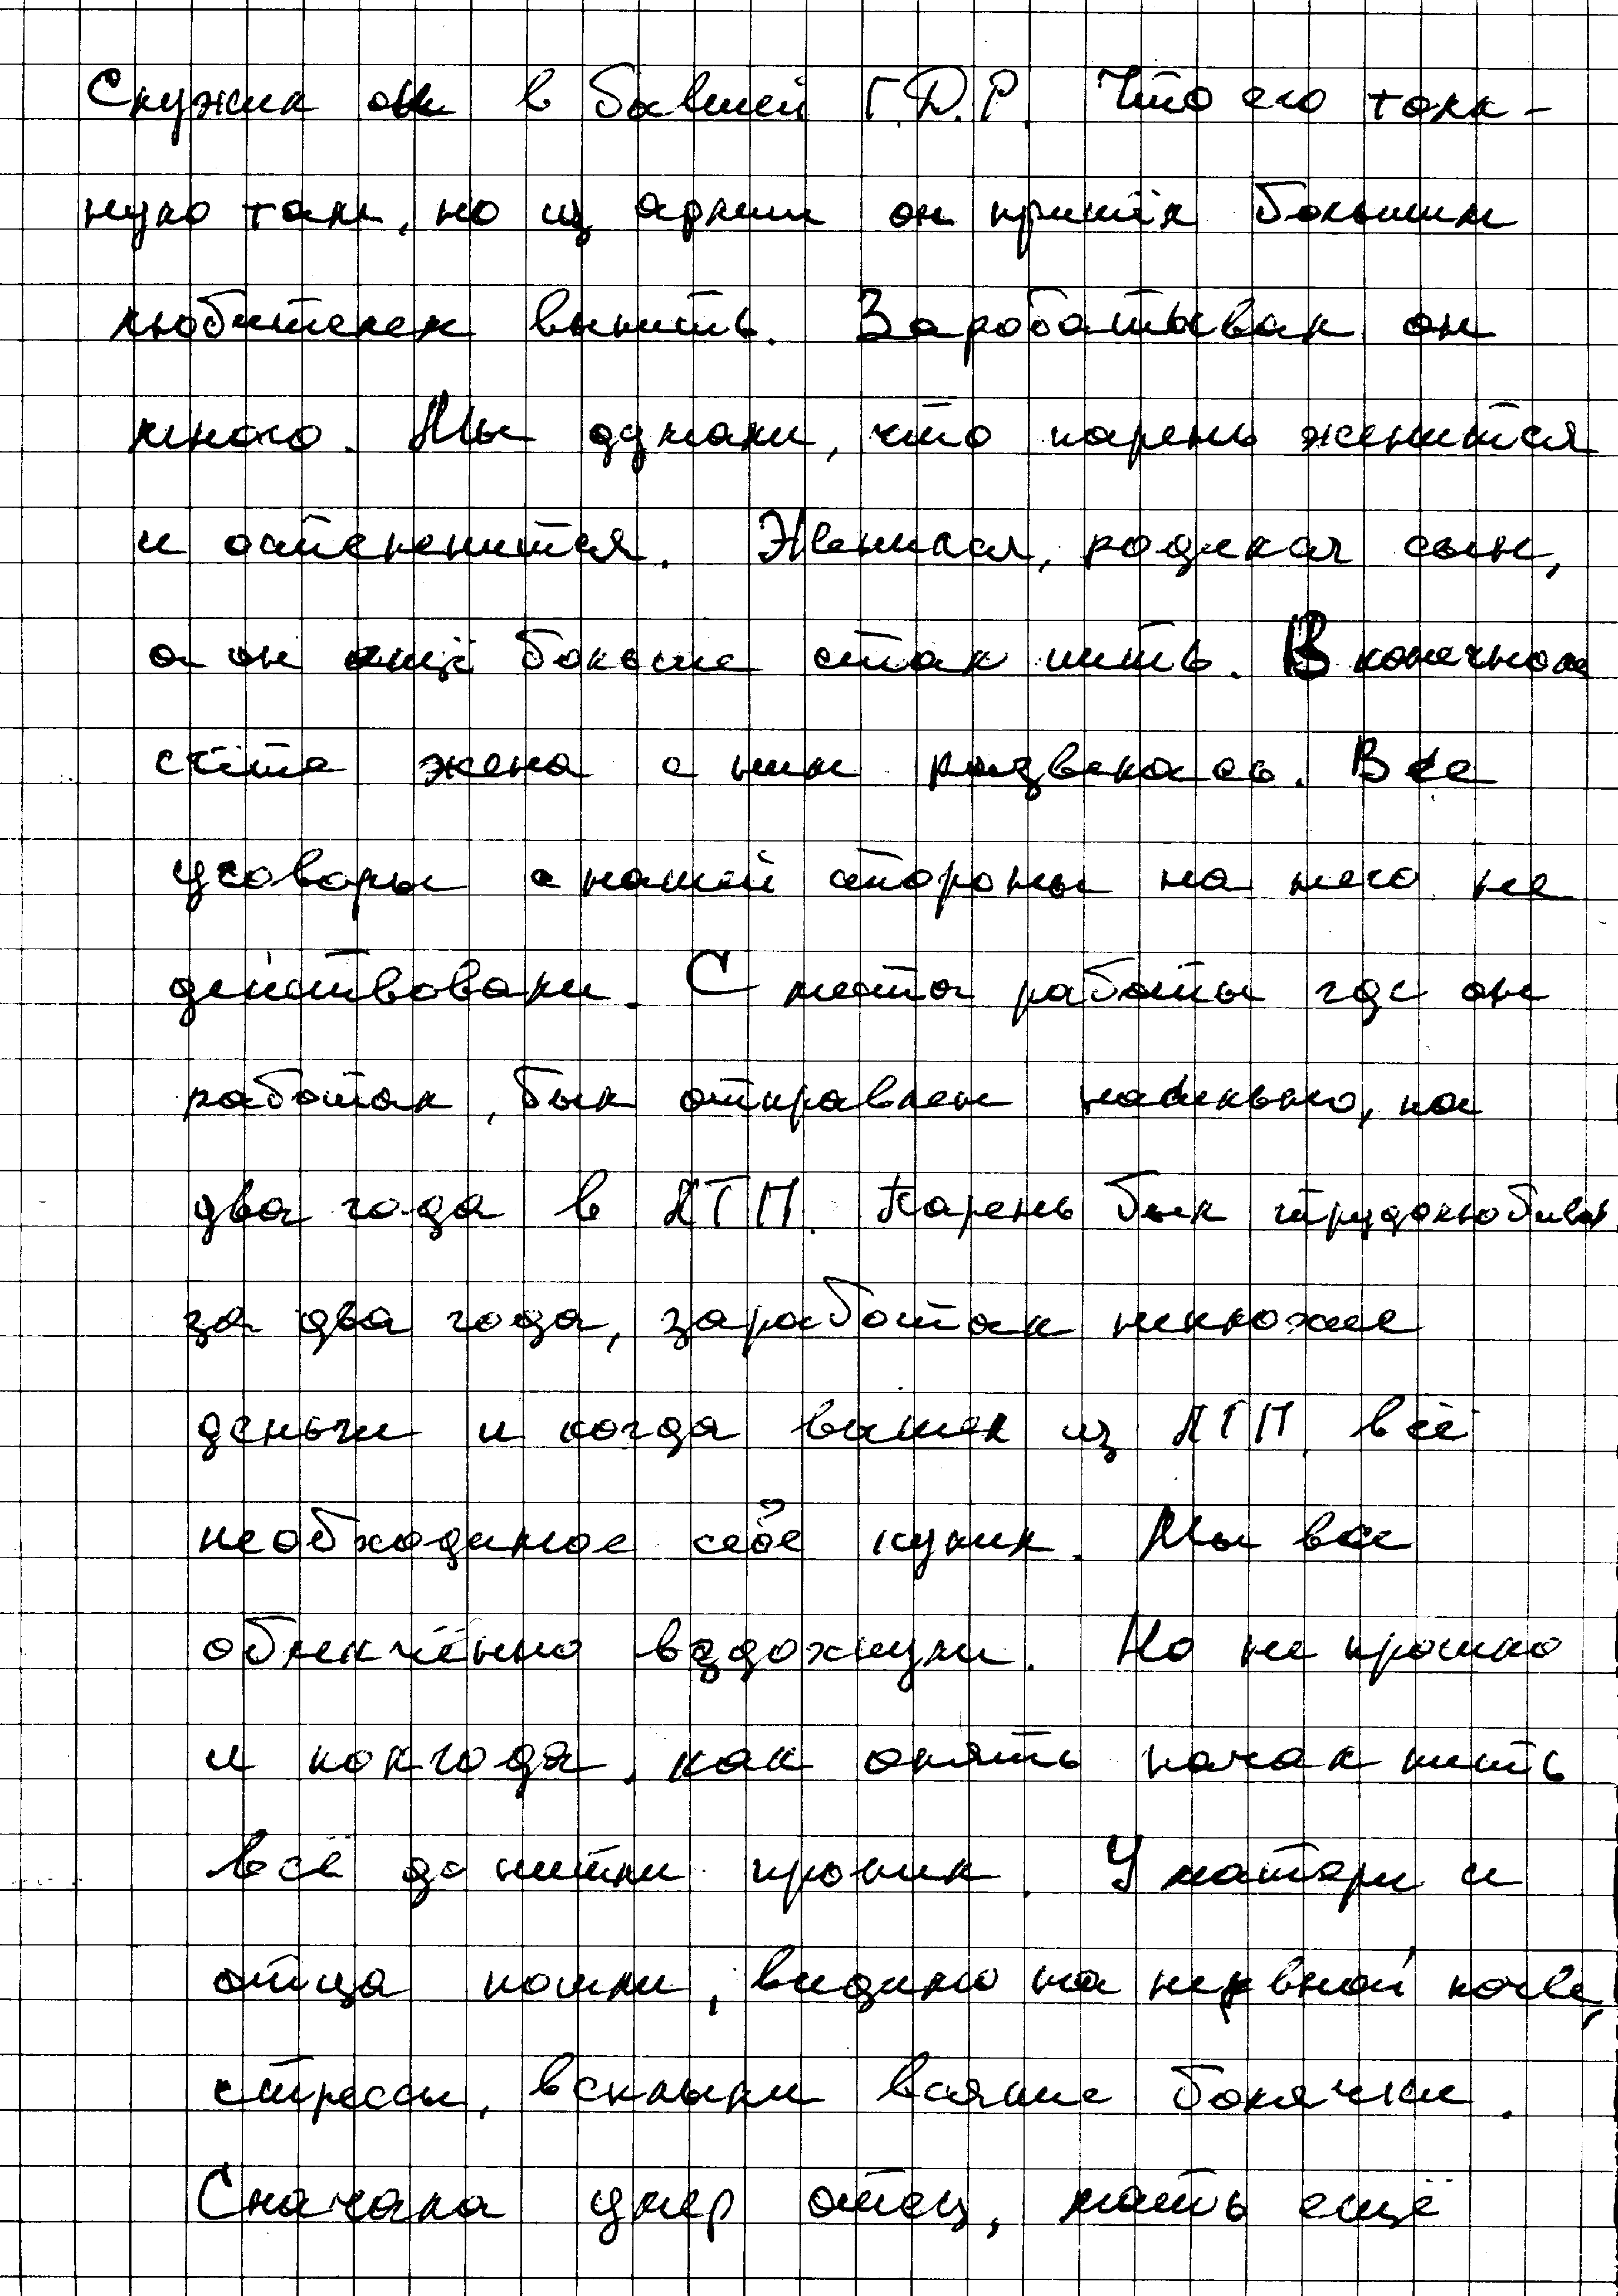 Служил он в бывшей Г.Д.Р. Что его толк-
нуло там, но из армии он пришёл большим
любителем выпить. Заробатывал он
много. Мы думали, что парень женится
и остепенится. Женился, родился сын,
а он ещё больше стал пить. В конечном
счёте жена с ним развелась. Все
уговоры с нашей стороны на него не
действовали. С места работы где он
работал, был отправлен насильно, на
два года в ЛТП. Парень был трудолюбив
за два года, заработал неплохие
деньги и когда вышел из ЛТП, всё
необходимое себе купил. Мы все
облегчённо вздохнули. Но не прошло
и полгода, как опять начал пить
всё до нитки пропил. У матери и
отца пошли, видимо на нервной почве,
стрессы, всплыли всякие болячки.
Сначала умер отец, мать ещё